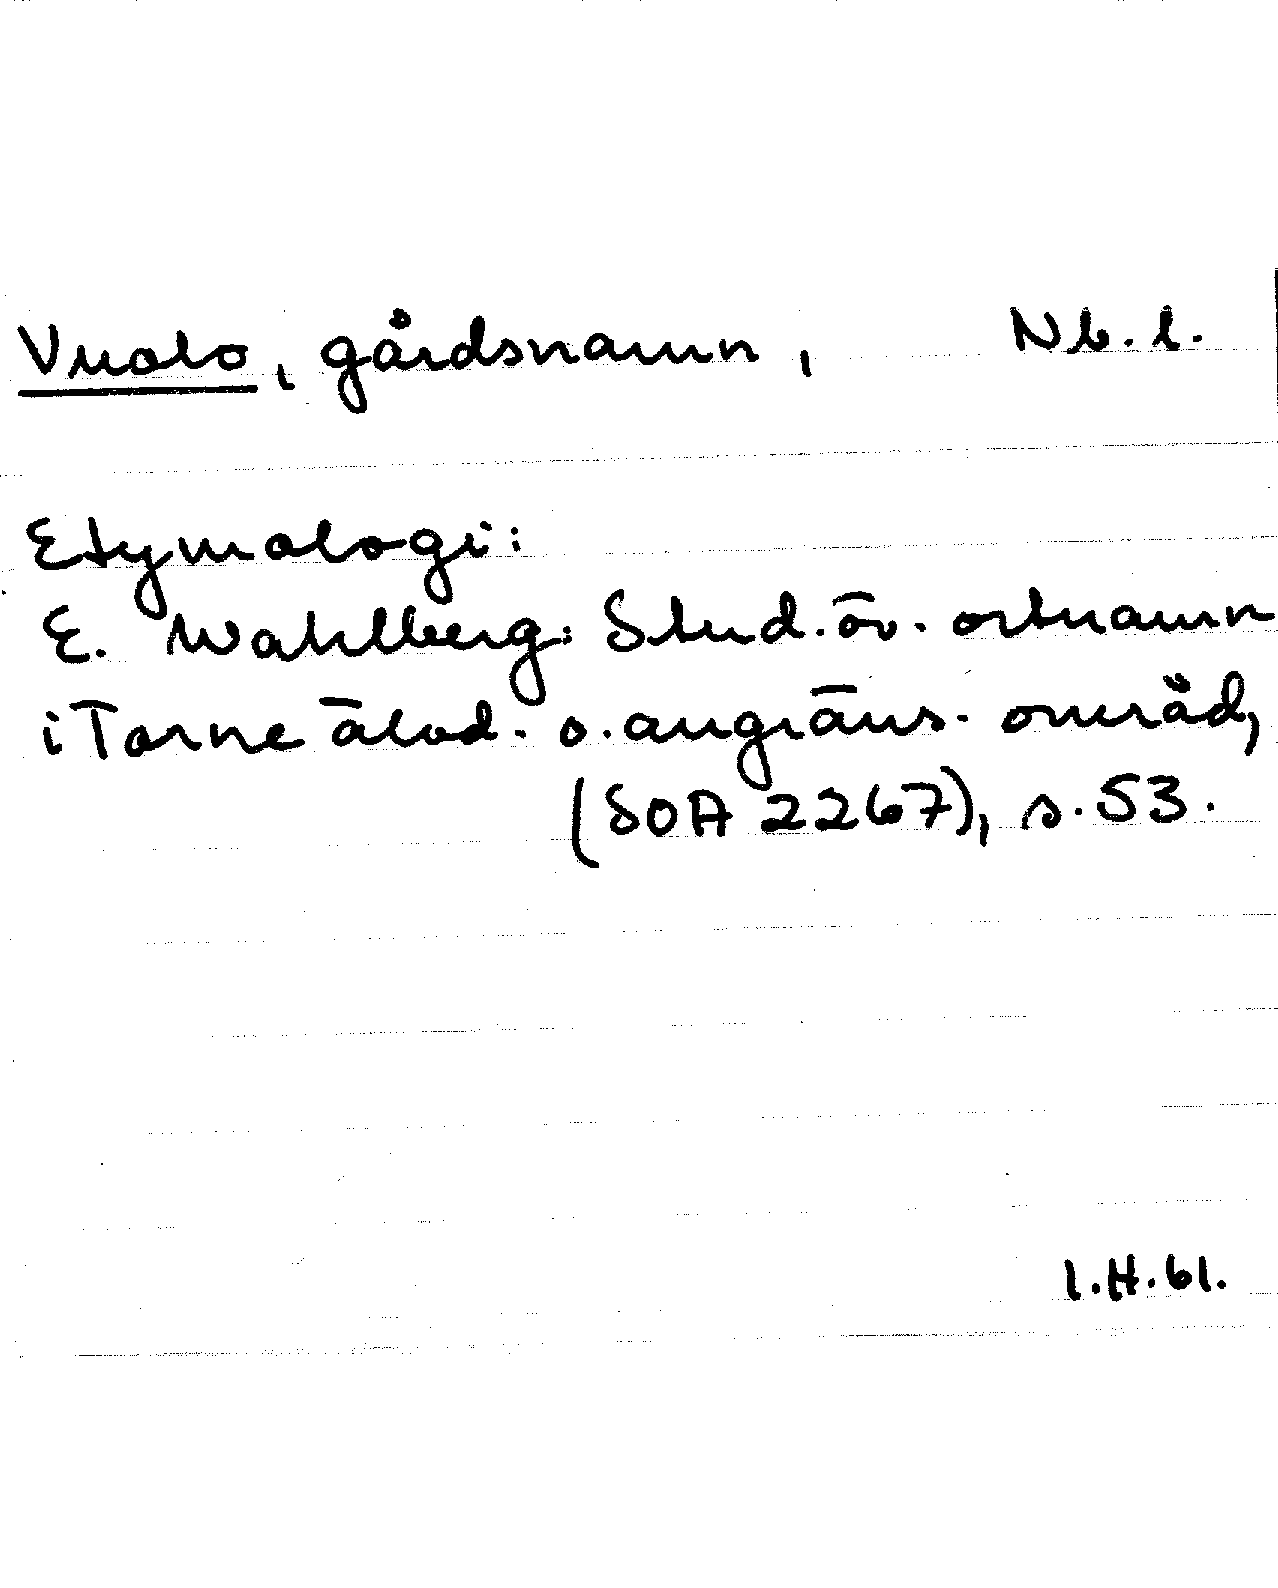 Vuolo, gårdsnamn, Nb. l.
Etymologi:
E. Wahlberg: Stud. öv. ortnamn
i Torne älvd. o. angräns. områd,
(SOA 2267), s. 53.
I.H. 61.